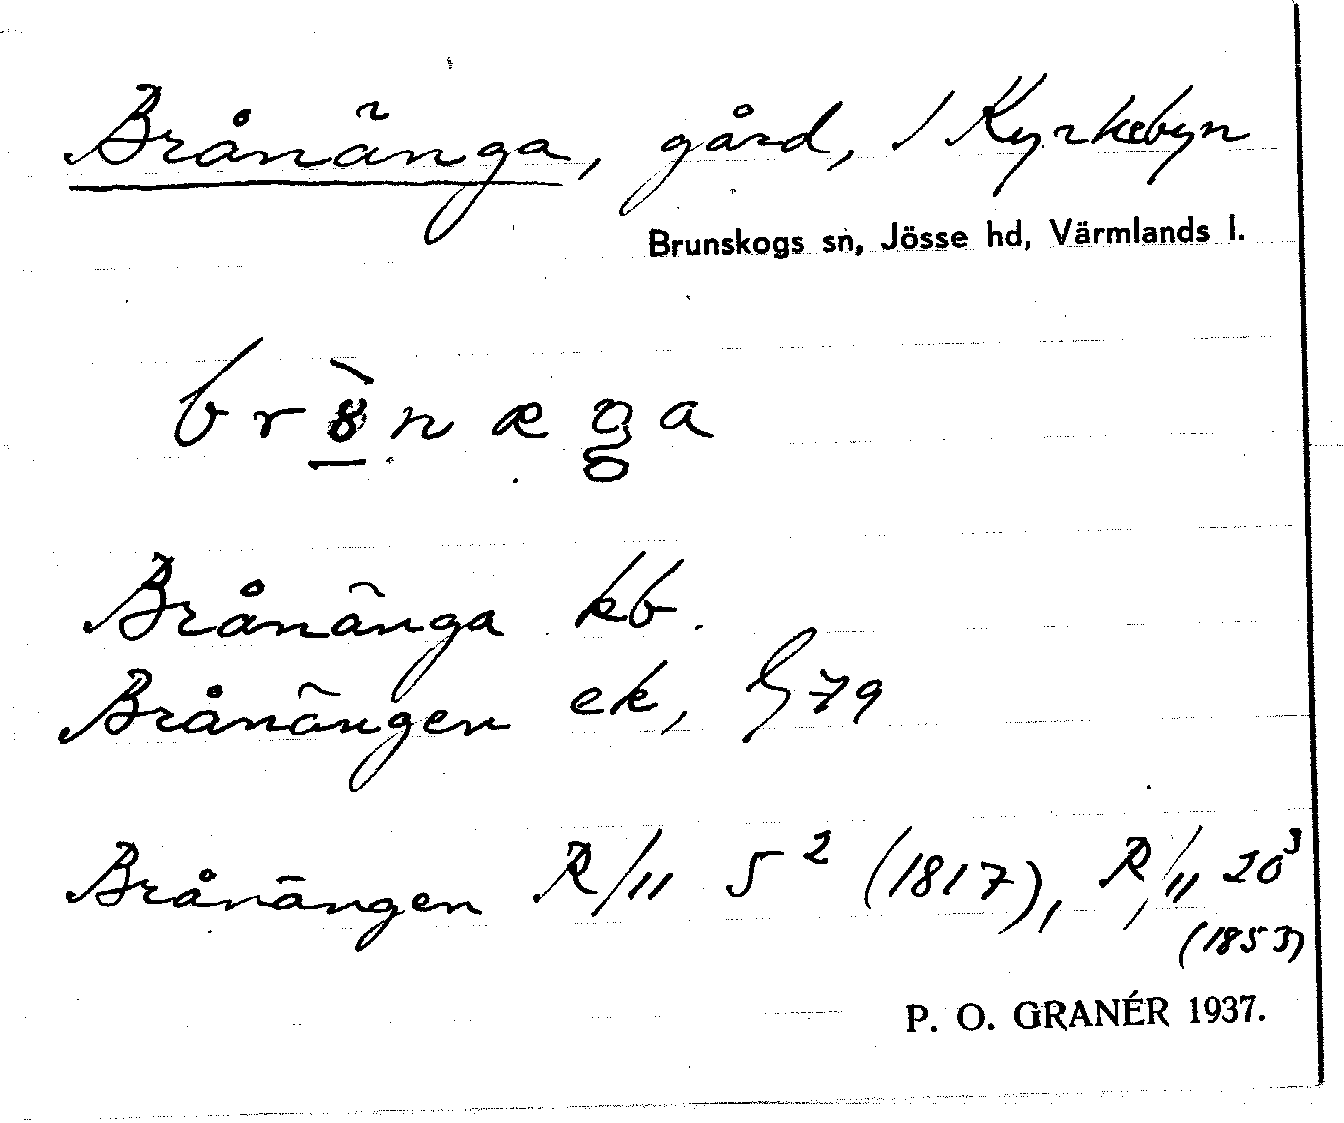 Brånänga, gård, / Kyrkebyn
Brunskogs sn, Jösse hd, Värmlands l.
Brånänga kb.
Brånängen ek, G 79
Brånängen R/11 5² (1817), R/11 20³
(1853)
P. O. GRANÉR 1937.